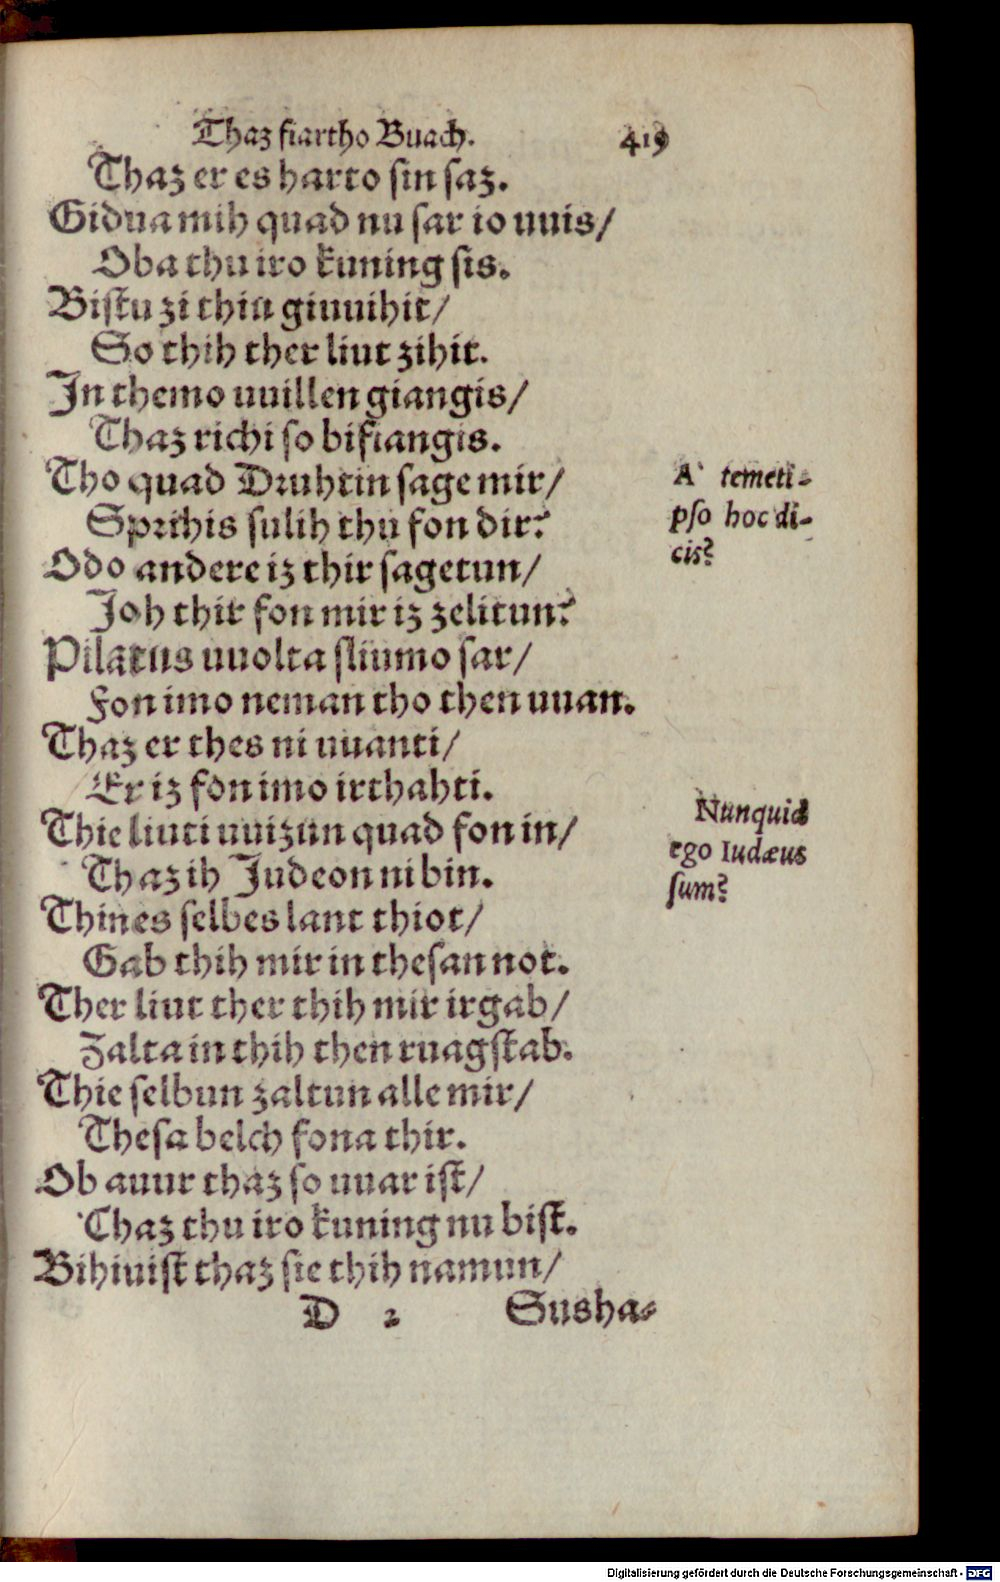 Thaz fiartho Buach. 419
Thaz er es harto sin saz.
Gidua mih quad nu sar io uuis/
Oba thu iro kuning sis.
Bistu zi thiu giuuihit/
So thih ther liut zihit.
In themo uuillen giangis/
Thaz richi so bifiangis.
Tho quad Druhtin sage mir/
Sprihis sulih thu fon dir?
Odo andere iz thir sagetun/
Joh thir fon mir iz zelitun?
Pilatus uuolta sliumo sar/
Fon imo neman tho then uuan.
Thaz er thes ni uuanti/
Er iz fon imo irthahti.
Thie liuti uuizun quad fon in/
Thaz ih Judeon ni bin.
Thines selbes lant thiot/
Gab thih mir in thesan not.
Ther liut ther thih mir irgab/
Zalta in thih then ruagstab.
Thie selbun zaltun alle mir/
Thesa belch fona thir.
Ob auur thaz so uuar ist/
Thaz thu iro kuning nu bist.
Bihiuist thaz sie thih namun/
D 2 Susha-
A' temeti-
pso hoc di-
cis?
Nunquid
ego Iudæus
sum?
Digitalisierung gefördert durch die Deutsche Forschungsgemeinschaft - DFG